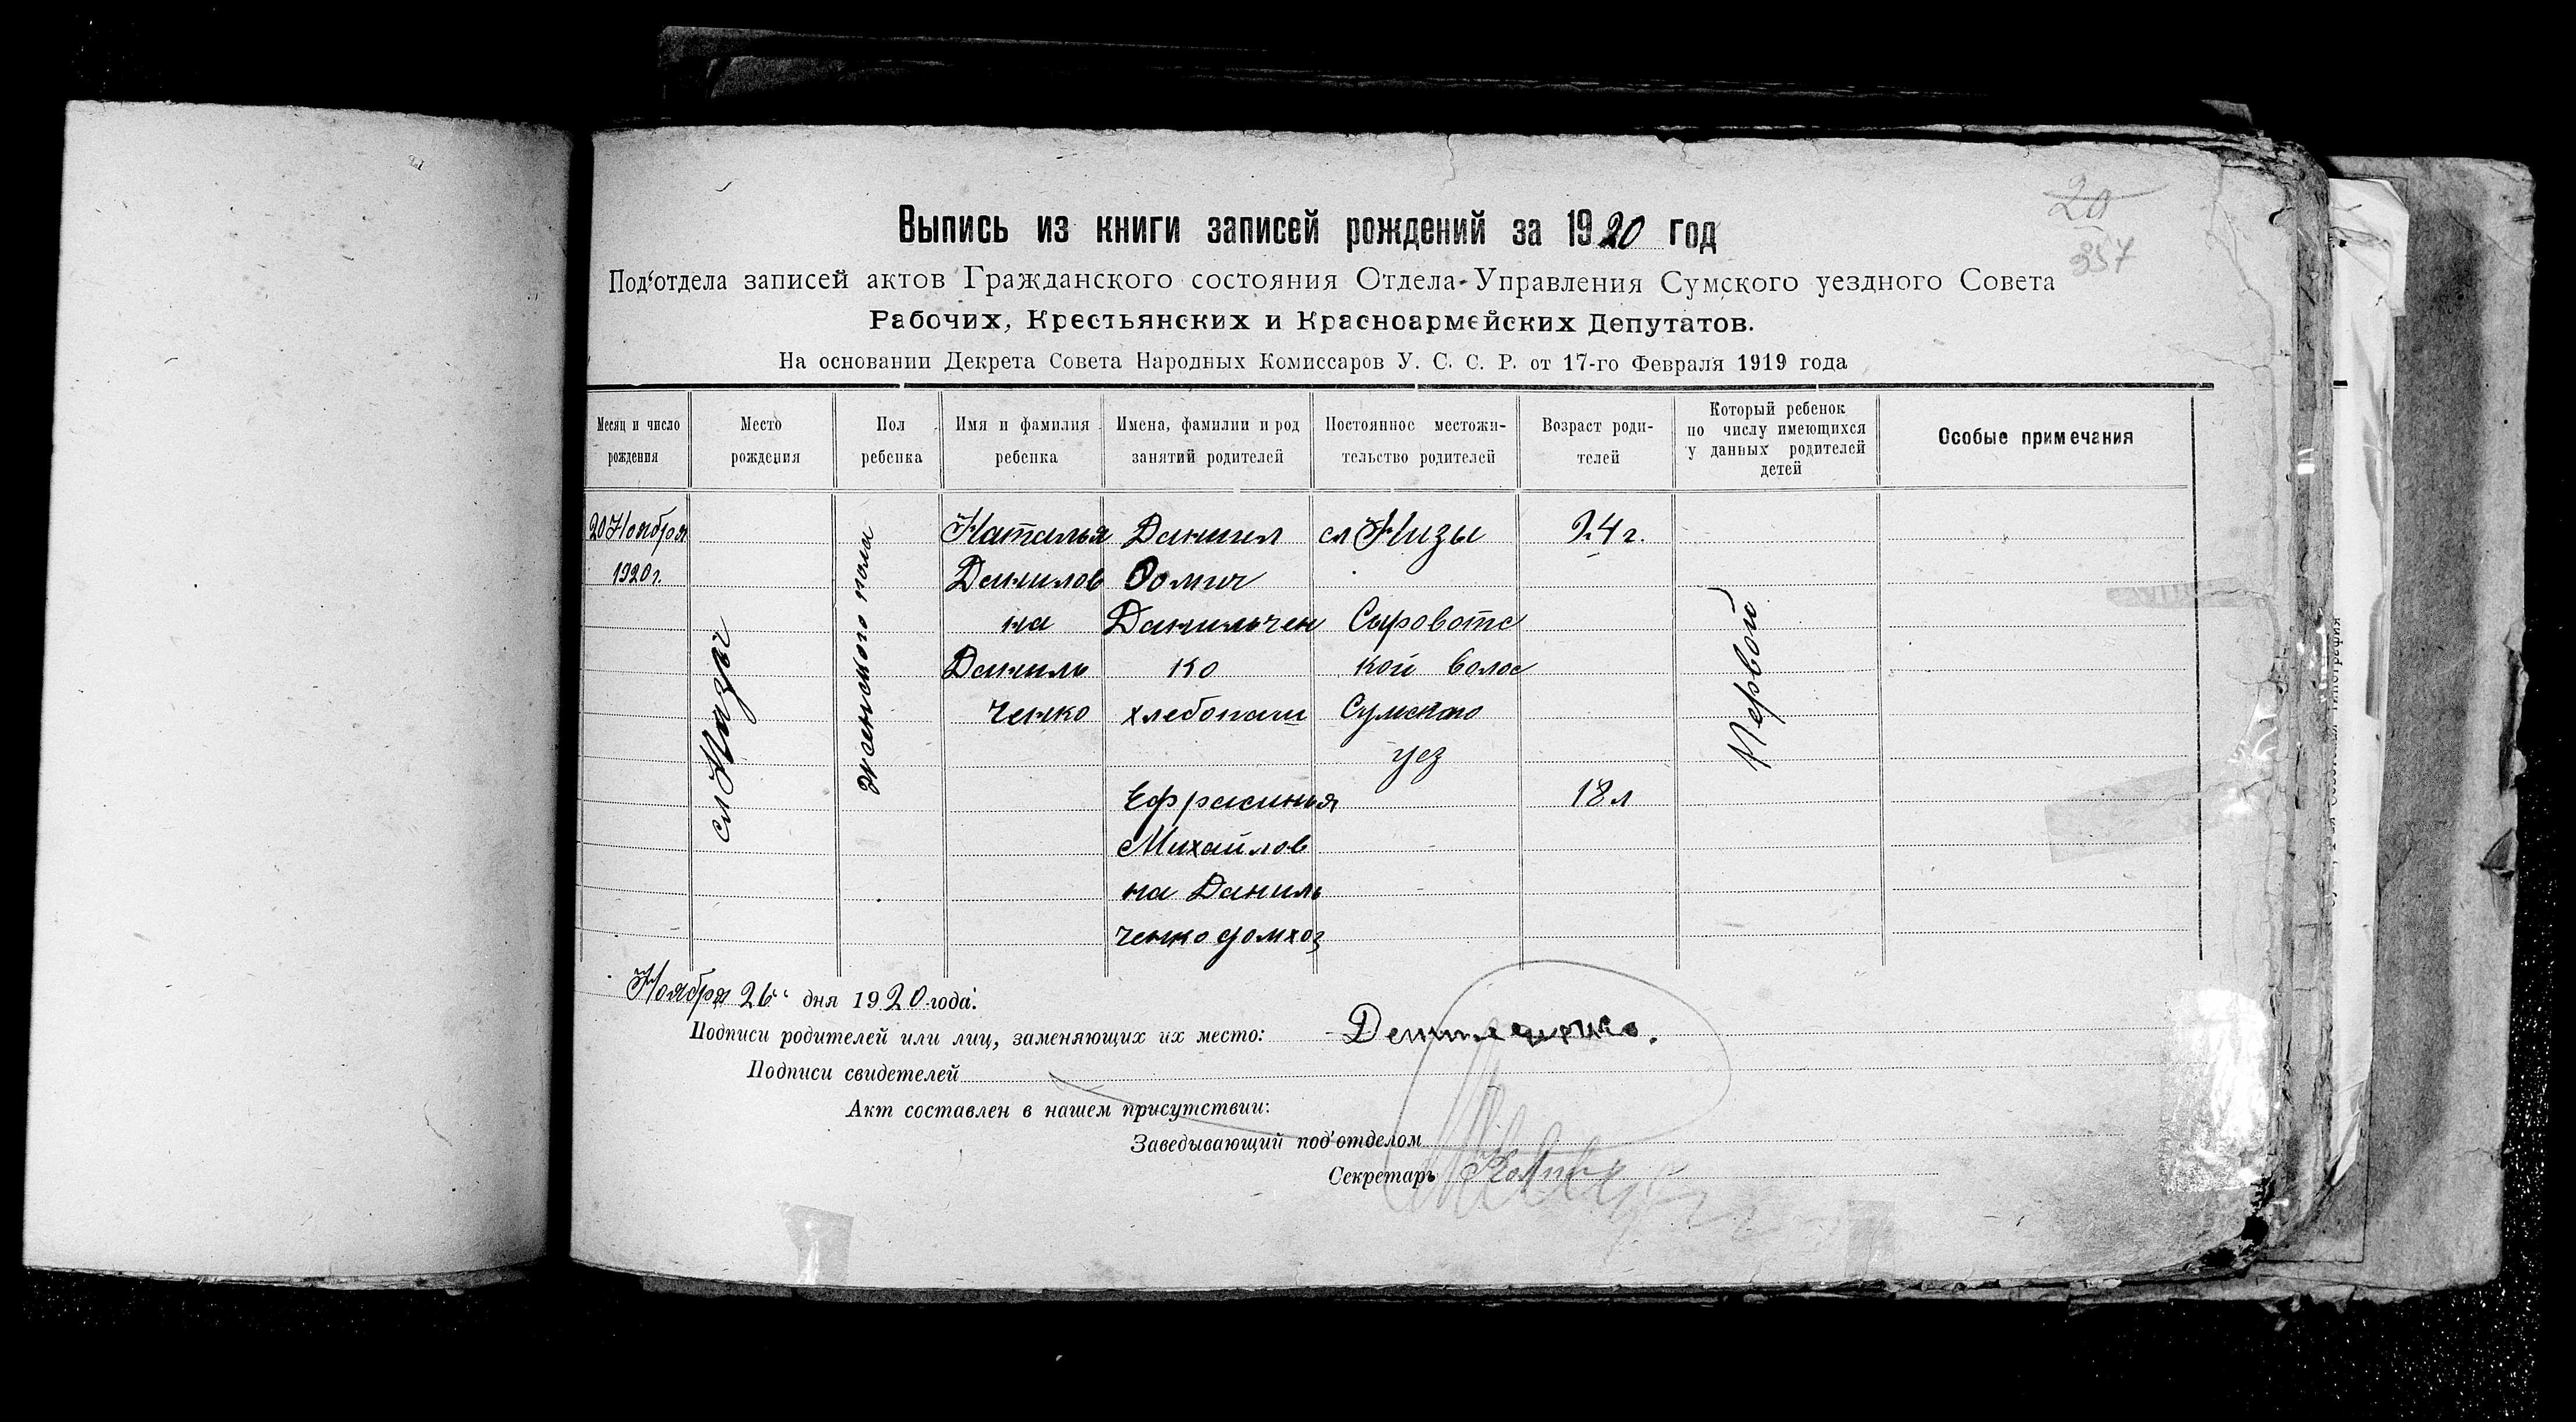 20
357
Выпись из книги записей рождений за 1920 год
Под‘отдела записей актов Гражданского состояния Отдела-Управления Сумского уездного Совета
Рабочих, Крестьянских и Красноармейских Депутатов.
На основании Декрета Совета Народных Комиссаров У. С. С. Р. от 17-го Февраля 1919 года
Месяц и число
рождения
Место
рождения
Пол
ребенка
Имя и фамилия
ребенка
Имена, фамилии и род
занятий родителей
Постоянное местожи-
тельство родителей
Возраст роди-
телей
Который ребенок
по числу имеющихся
у данных родителей
детей
Особые примечания
20 Ноября
1920 г.
сл Низы
женского пола
Наталья
Данилов
на
Даниль
ченко
Даниил
Фомич
Данильчен
ко
хлебопаш
сл Низы
Сыроватс
кой волос
Сумского
уез
24 г.
Первой
Ефрасиния
Михайлов
на Даниль
ченко домхоз
18 л
Ноября 26 дня 1920 года.
Подписи родителей или лиц, заменяющих их место:
Подписи свидетелей
Акт составлен в нашем присутствии:
Заведывающий под‘отделом
Секретарь